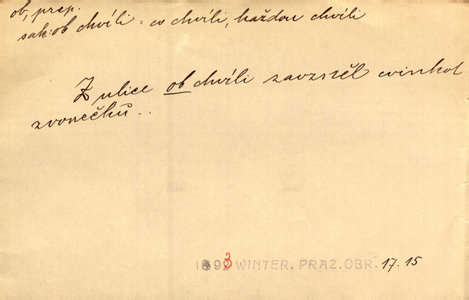 ob, prep.
sak. ob chvíli = co chvíli, každou chvíli
Z ulice ob chvíli zavzněl cinkot
zvonečků..
1893 WINTER, PRAŽ. OBR. 17. 15